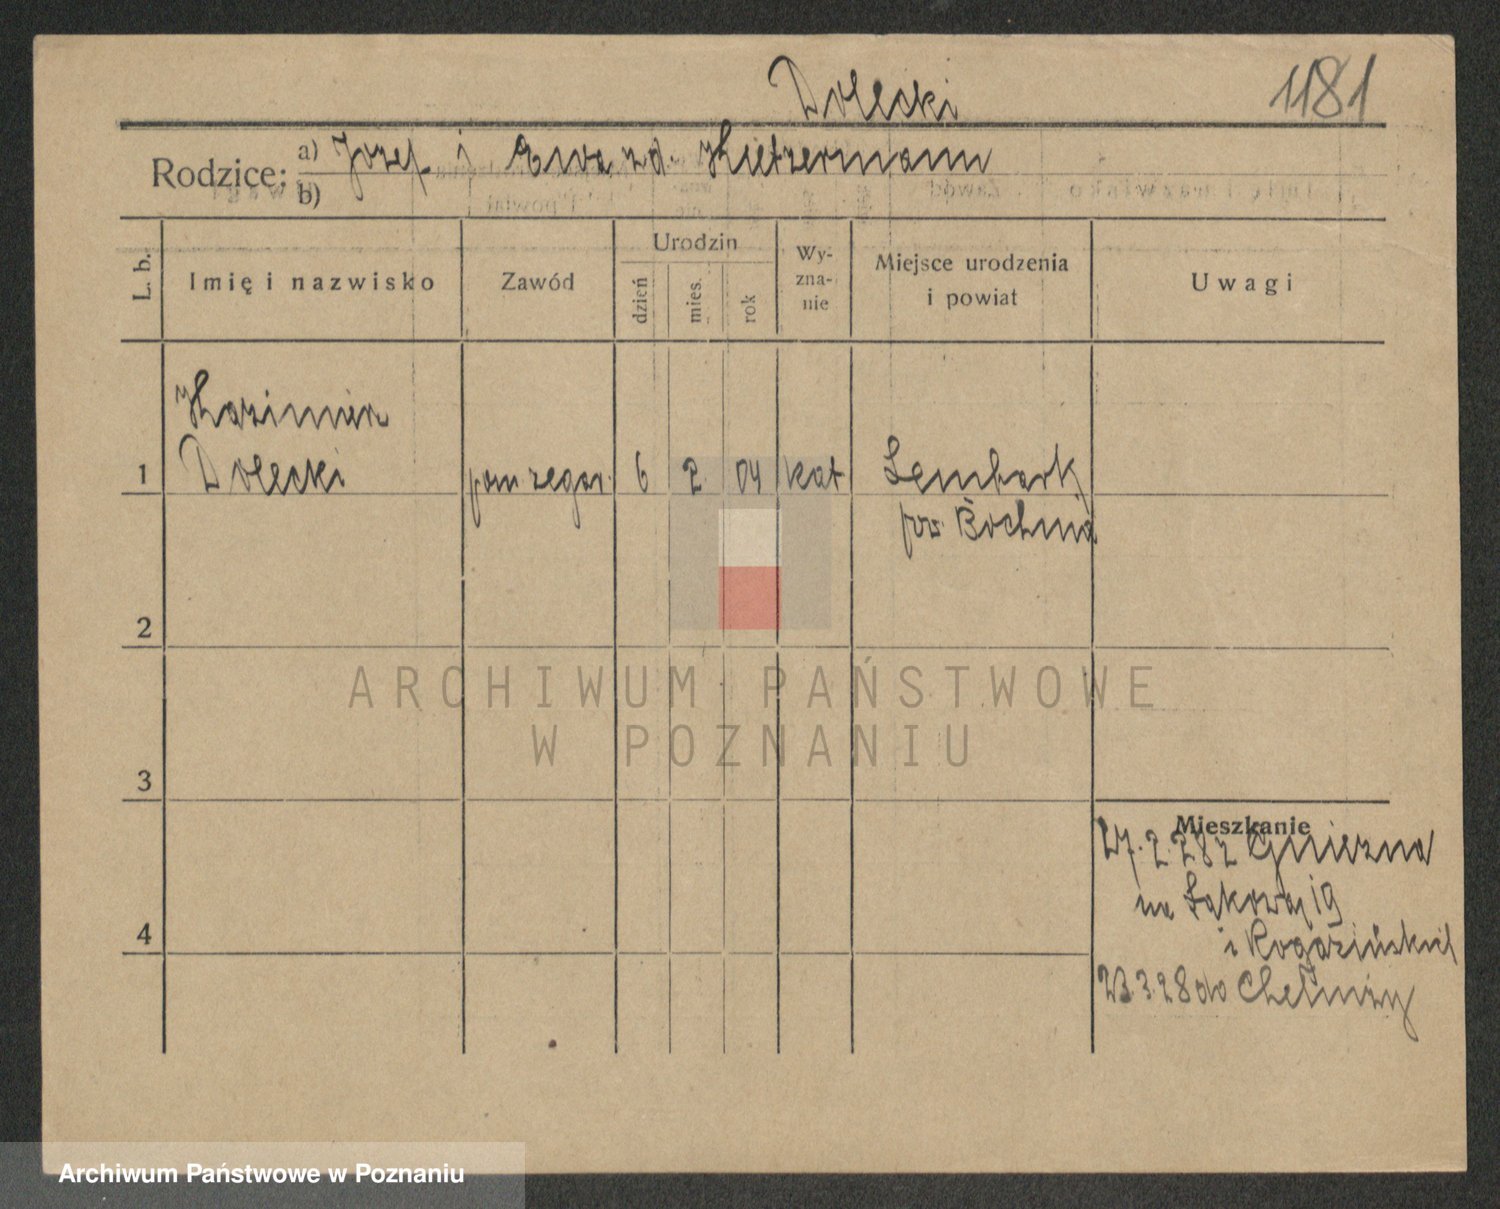 Dolecki 1181
Rodzice: a) Józef i Ewa zd. Kietzermann
b)
L. b. Imię i nazwisko Zawód Urodzin dzień mies. rok Wy-zna-nie Miejsce urodzenia i powiat Uwagi
Kazimierz
1 Dolecki pom zegar. 6 2 04 kat Lembark
pow Bochnia
2
ARCHIWUM PAŃSTWOWE
W POZNANIU
3
Mieszkanie
27. 2. 28 z Gniezna
na Łąkową 19
4
i Rogozińskich
23.3.28 do Chełmży
Archiwum Państwowe w Poznaniu